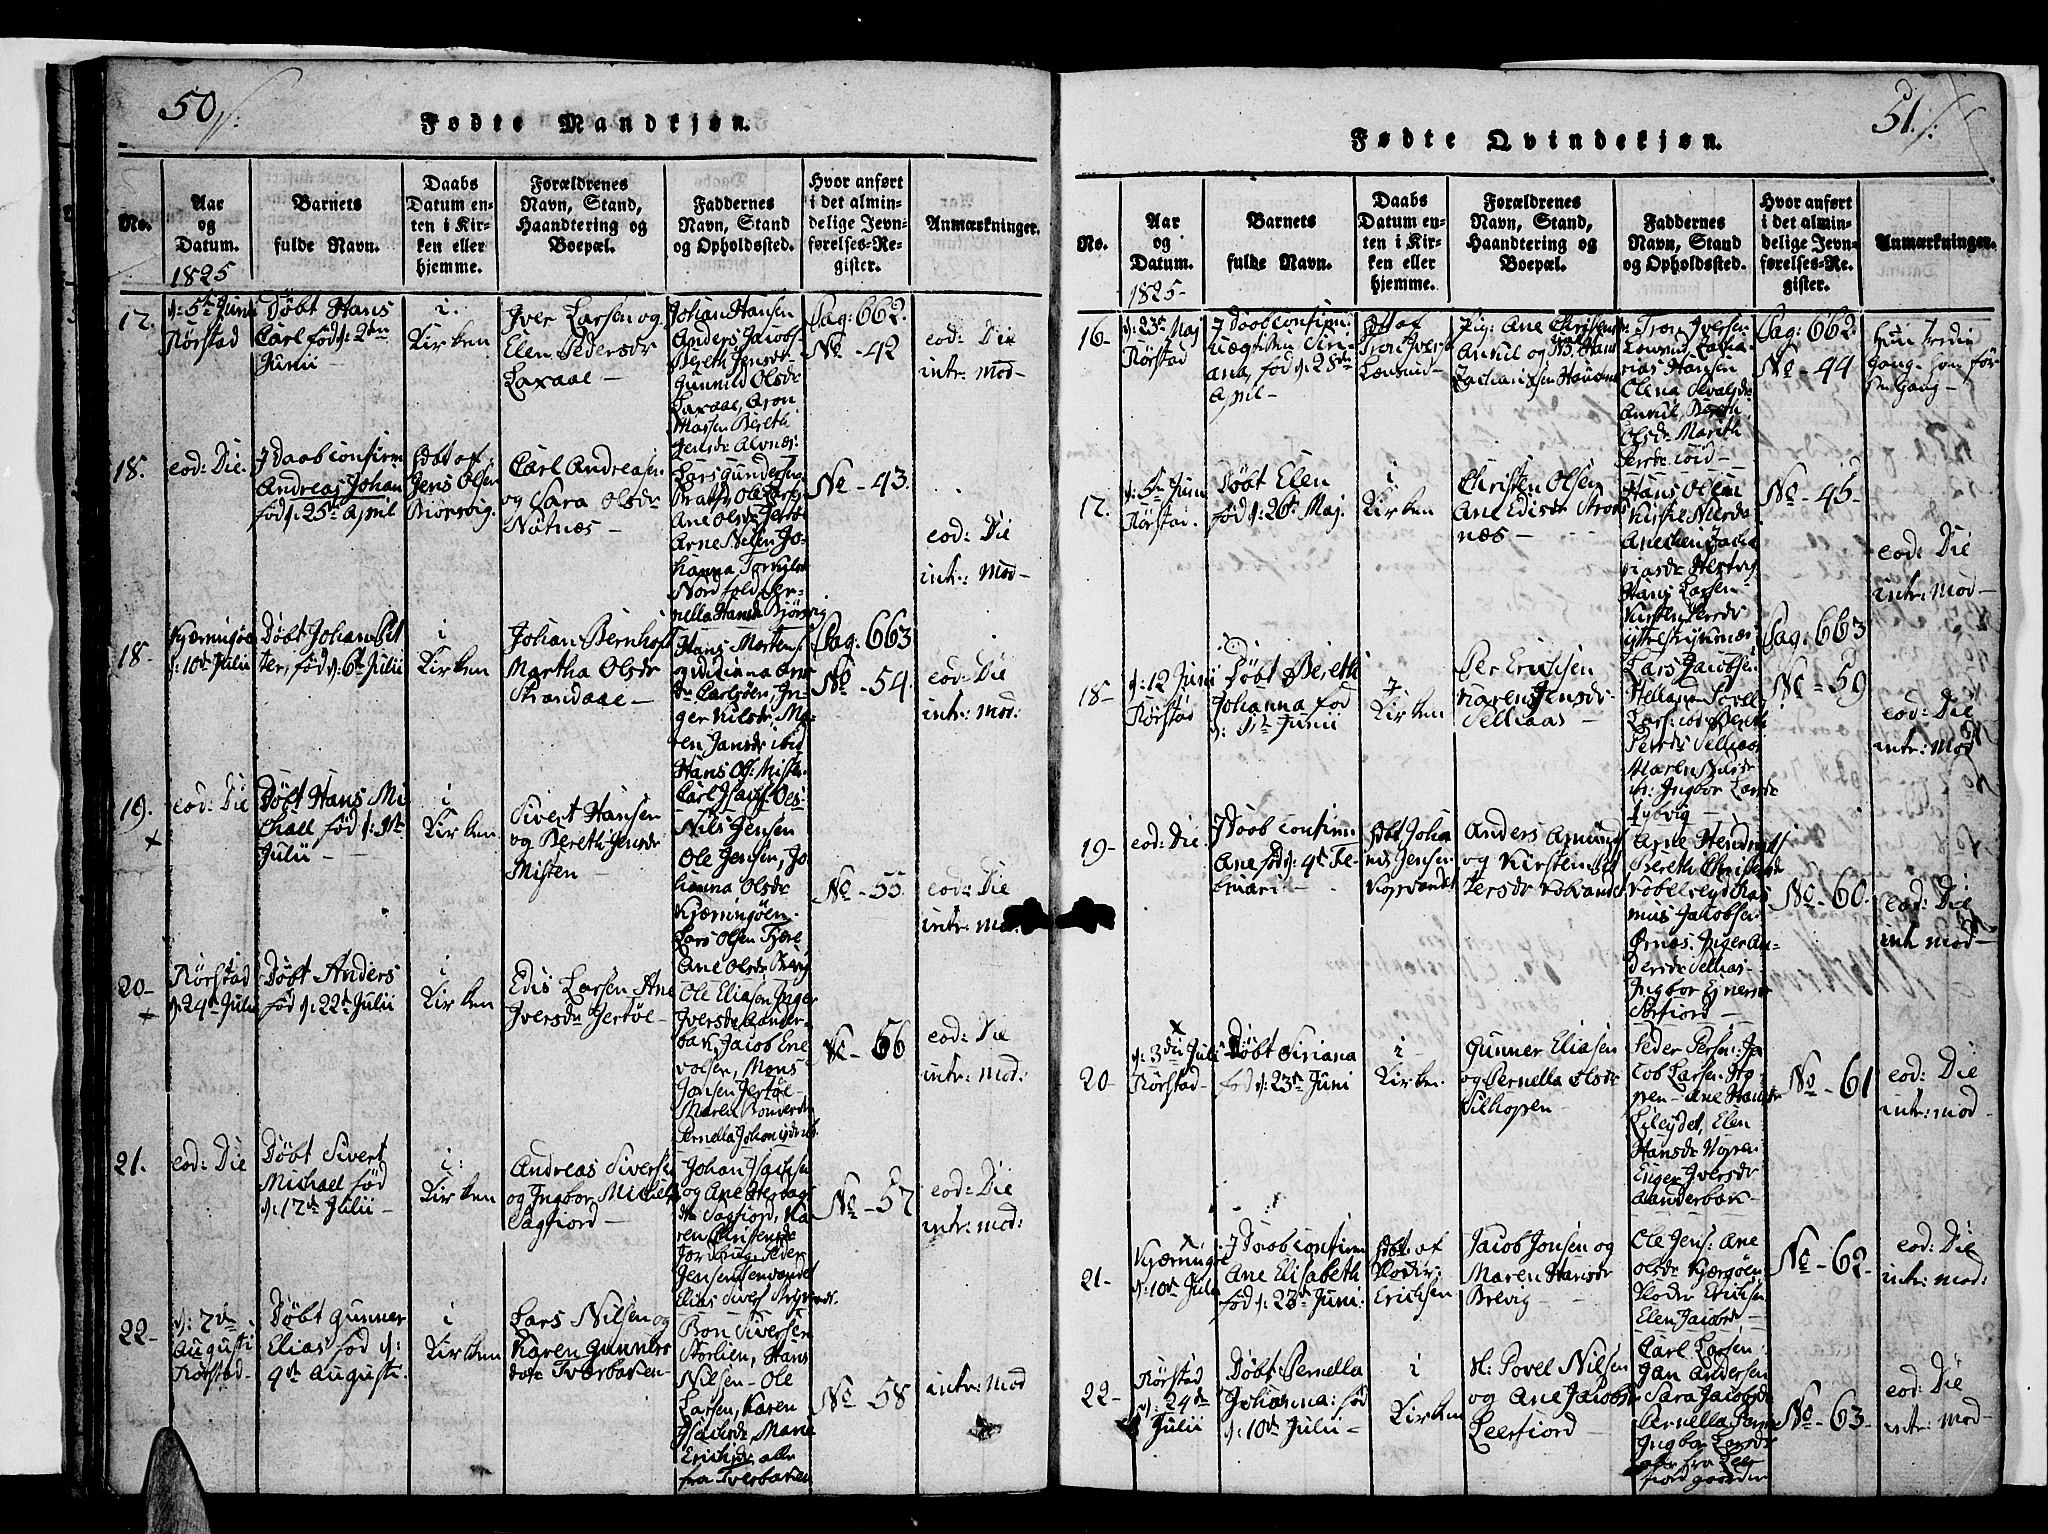 50
Fødte Mandkjøn.
No.
Aar
og
Datum.
1825
Barnets
fulde Navn.
Daabs
Datum en-
ten i Kir-
ken eller
hjemme.
Forældrenes
Navn, Stand,
Haandtering og
Boepæl.
Faddernes
Navn, Stand
og Opholdssted.
Hvor anført
i det almin-
delige Jevn-
førelses-Re-
gister.
Anmærkninger.
17.
d: 5te Juni
Rörstad
Döbt Hans
Carl fød d: 2den
Junii
i
Kirken
Iver Larsen og
Elen Pedersdr
Laxaae
Johan Hansen
Anders Jacobs-
Bereth Jensdr
Gunnild Olsdr
Laxaae, Aron
Bereth
Jensdr Alvnæs
Pag: 662.
No - 42
eod: Die
intr: Mod-
18.
eod: Die.
J Daab confirm
Andreas Johan
fød d: 25de April
döbt af
Jens Olsen
Carl Andreasen
og Sara Olsdr
Nötnæs
Lars Gundersen
Ane Olsdr Jertöe
Arne Nilsen Jo-
hanna
Nordfold Per-
nella Hansdr Björsvig
No - 43.
eod: Die
intr: Mod-
18-
Kjærringöe
d: 10de Julii
Döbt Johan Pet
ter, fød d: 6te Julii
i
Kirken
Johan Bernhoft
Martha Olsdr
Strandaae
Hans Mortens:
Carlsöen, In-
ger Nilsdr, Ma-
ren Jansdr ibid
Hans Ols: Misten
Pag: 663
No - 54.
eod: Die
intr: mod:
19.
eod: Die
Döbt Hans Mi
chael fød d: 1ste
Julii
i
Kirken
Sivert Hansen
og Bereth Jensdr
Misten
Nils Jensen
Ole Jensen, Jo
hanna Olsdr
Kjærringöen.
No - 55.
eod: Die
intr: mod:
20-
Rörstad
d: 24de Julii
Döbt Anders
fød d: 22de Julii
i
Kirken
Edis Larsen Ane
Iversdr Jertöe
Lars Olsen Fjære
Ane Olsdr
Ole Eliasen Inger
Iversdr Aander-
bak, Jacob Ene
volsen, Mons
Jonsen Jertöe
Maren
Pernella
No - 56
eod: Die
intr: mod:
21.
eod: Die
Döbt Sivert
Michael fød
d: 17de Julii
i:
Kirken
Andreas Siversen
og Ingbor Michels
Sagfiord
Johan Isachsen
og Ane
Sagfiord, Ka
ren Christensdr
Peder
Jensen Tenvandet
Elias Sivers
No - 57
eod: Die
intr: mod:
22-
d: 7de
Augusti
Rörstad
Döbt Gunner
Elias fød d:
4de Augusti.
i
Kirken
Lars Nilsen og
Karen Gunners
datr Tverbakken
Bon Siversen
Storlien, Hans
Nilsen - Ole
Larsen, Karen
Isachsdr, Maren
Erichsdr alle
fra Tverbakken
No - 58
intr: mod
51.
Fødte Qvindekjøn.
No.
Aar
og
Datum.
1825-
Barnets
fulde Navn.
Daabs
Datum en-
ten i Kir-
ken eller
hjemme.
Forældrenes
Navn, Stand,
Haandtering og
Boepæl.
Faddernes
Navn, Stand
og Opholdssted.
Hvor anført
i det almin-
delige Jevn-
førelses-Re-
gister.
Anmærkninger.
16-
d: 23de Maj
Rörstad
J Daab confirm:
ana, fød d: 28de
April
döbt af
Tron Ivers
Pig: Ane Christens
og
Zachariasen
Tron Iversen
rias Hansen
Olena
Olsdr Mareth
Persdr ibid
Pag: 662.
No - 44
17.
d: 5te Juni
Rörstad.
Döbt Elen
fød d: 26de Maj.
i
Kirken
Christen Olsen
Ane Edisdr
næs
Hans Olsen
Hans Larsen
Kirsten Persdr
No - 45-
eod: Die
intr: Mod-
18-
d: 12 Junii
Rörstad
Döbt Bereth
Johanna fød
d: 1ste Junii
i
Kirken
Per Erichsen
Karen Jensdr
Selliaas
Lars Jacobsen
Maren
Ingbor Larsdr
Pag: 663
No - 59
eod: Die
intr: Mod
19-
eod: Die
J Daab confirm
Ane fød d: 4de Fe-
bruari
döbt Joha
nes Jensen
Anders Amund
og Kirsten Pet
tersdr
Arne
Bereth Christensdr
mus Jacobsen
Ørnæs, Inger An-
dersdr Selliaas
Ingbor Einersdr
No - 60.
eod: Die
intr mod-
20-
d: 3die Julii
Rörstad-
Döbt Siriana
fød d: 23de Juni
i
Kirken
Gunner Eliasen
og Pernella Olsdr
Lilhopen
Peder Persen: Ja
cob Larsen: Ho
pen - Ane Hansdr
Elen
Hansdr Hopen
Inger Iversdr
Aanderbak
No - 61
eod: Die
intr: mod-
21-
Kjærringöe
d: 10de Julii
J Daab confirm
Ane Elisabeth
fød d: 23de Juni:
döbt af
Erichsen
Jacob Jonsen og
Maren Hansdr
Brevig
Ole Jens: Ane
Olsdr Kjærgöen
Erichsen
Elen Jacobsdr
No - 62-
eod: Die
intr: mod:
22-
Rörstad
d: 24de
Julii
Döbt Pernella
Johanna: fød
d: 10de Julii
i
Kirken
H: Povel Nilsen
og Ane Jacobsdr
Leerfiord
Carl Larsen
Jan Andersen
Sara Jacobsdr
Pernella
Ingbor Larsdr
alle fra Leer
fiord gaarden
No - 63-
eod: Die
intr: mod-